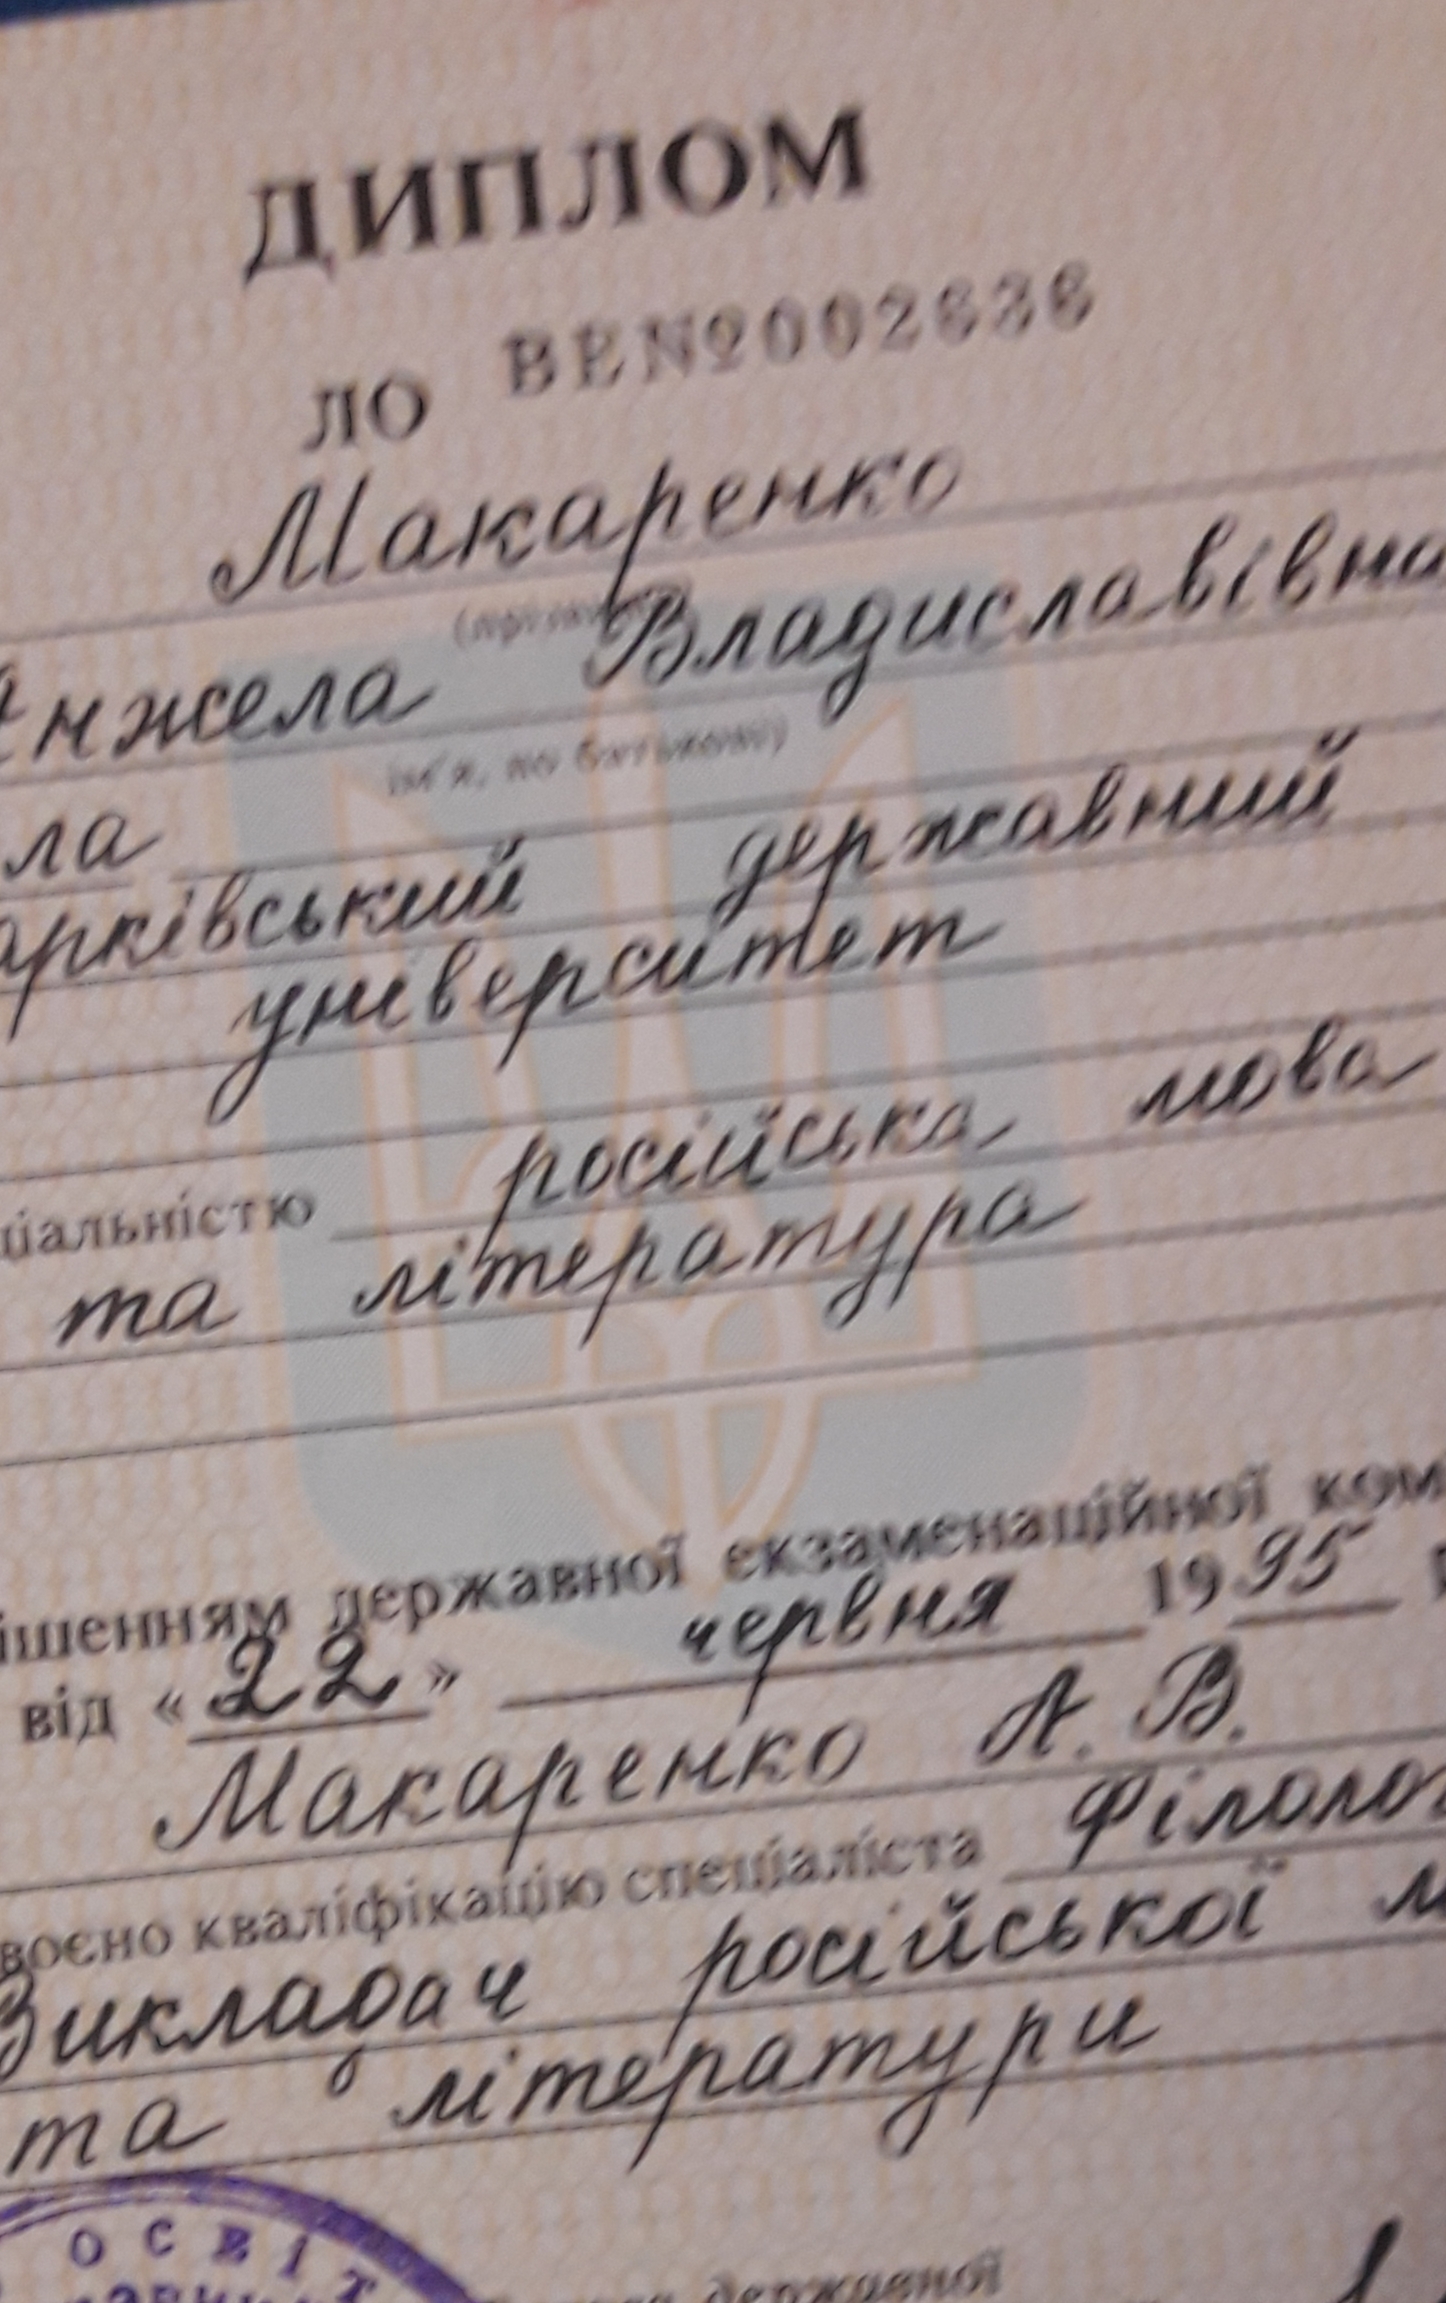 ДИПЛОМ
ЛО ВЕ№002636
Макаренко
Анжела Владиславівна
(прізвище)
ім'я, по батькові)
ла
арківський державний
університет
ціальністю російська мова
та література
ішенням державної екзаменаційної ком
від «22» червня 1995
Макаренко А. В.
воєно кваліфікацію спеціаліста Філолог
Викладач російської м
та літератури
ОСВІТ
державної